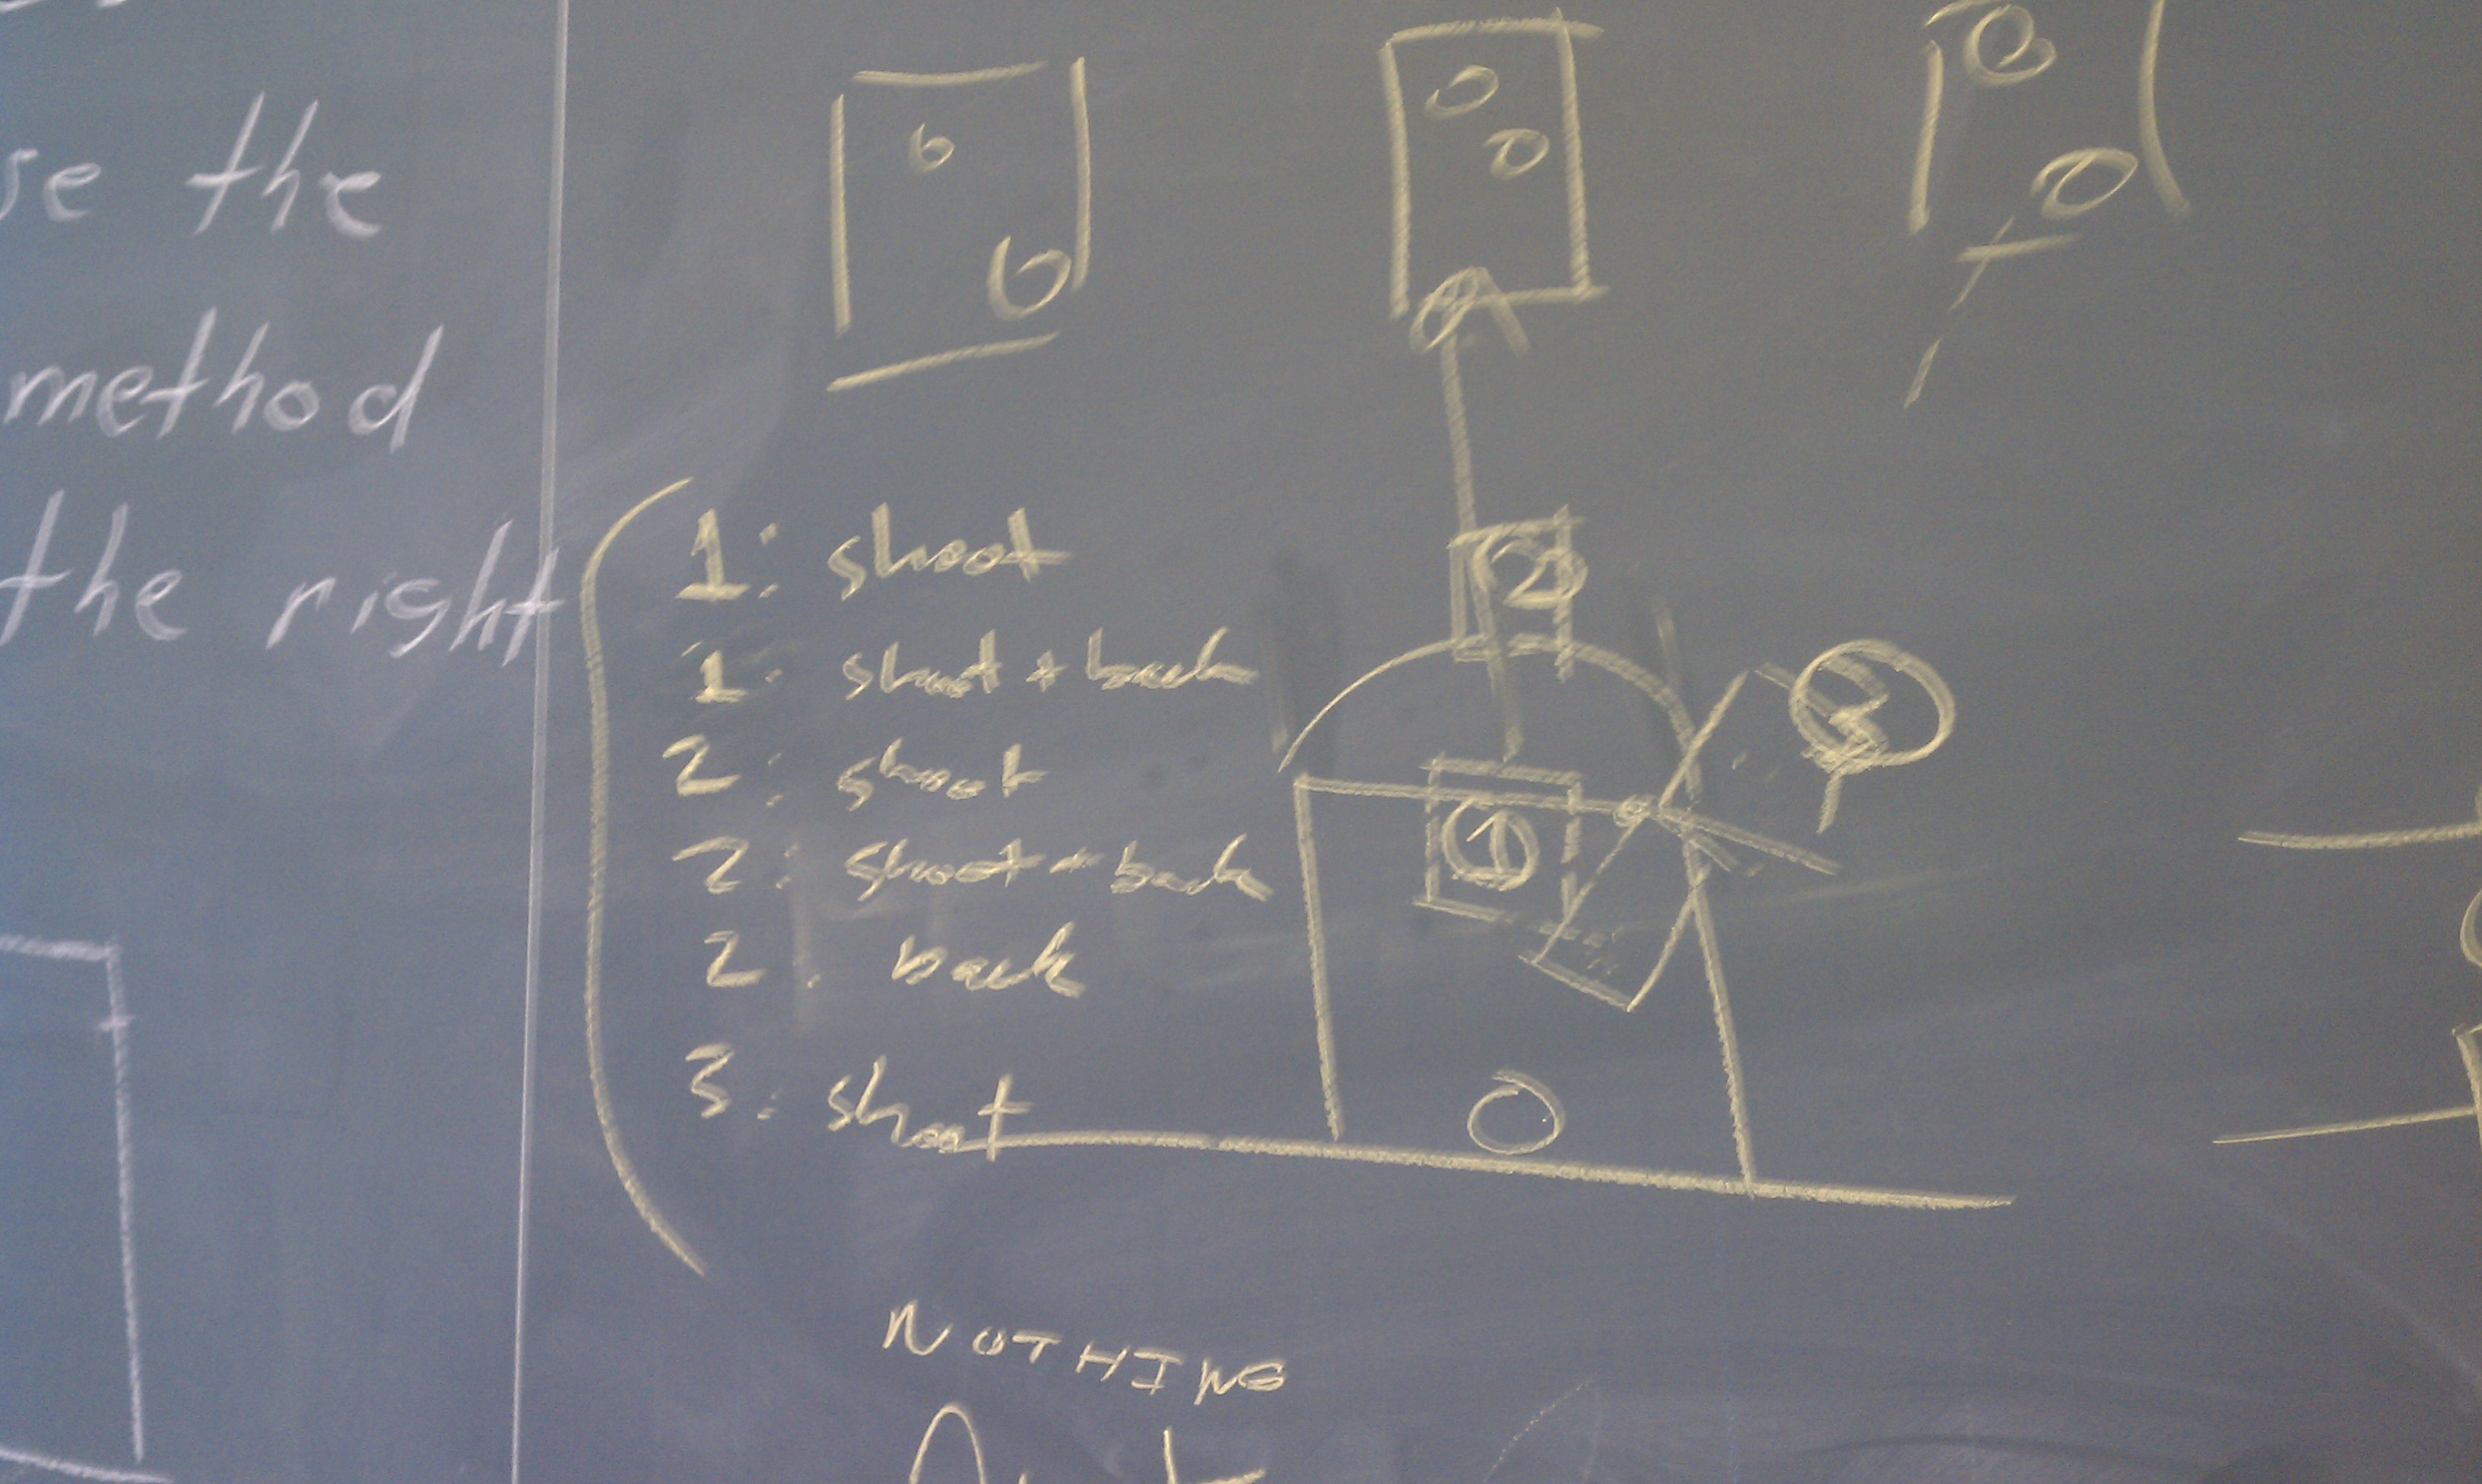 the
method
the right
1: shoot
1: shoot + back
2: shoot
2: shoot + back
2: back
3: shoot
2
3
1
NOTHING